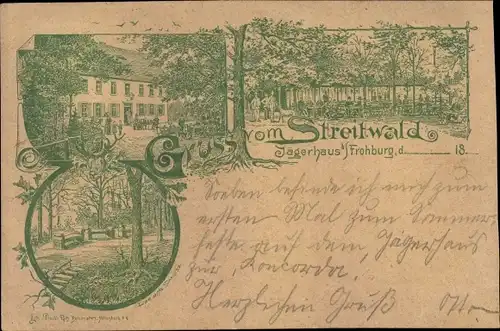 Gruss vom Streitwald
Jägerhaus b/Frohburg, d. 18
Soeben befinde ich mich zum
ersten Mal zum Sommer
feste auf dem "Jägerhaus
zur "Koncorda".
Herzlichen Gruß Otto